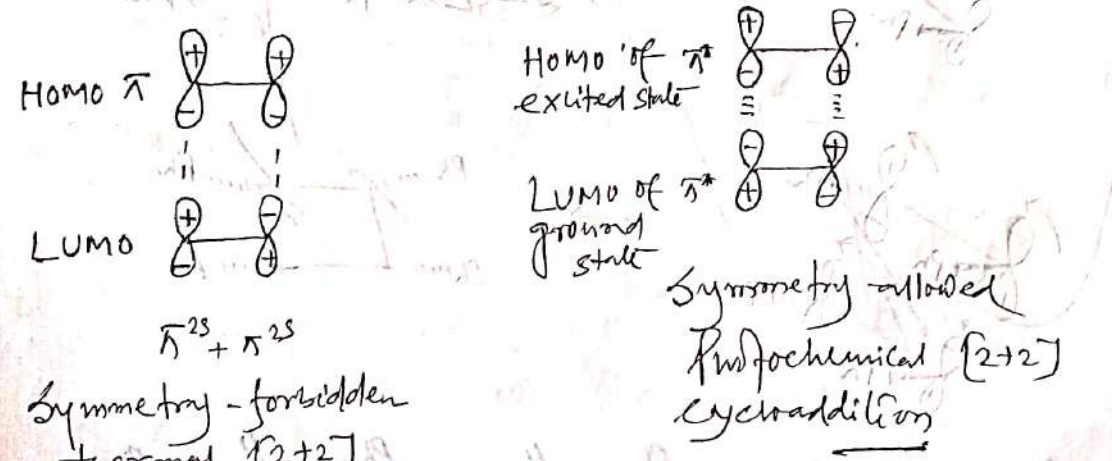 HOMO π
+ +
- -
LUMO
+ -
- +
π2s + π2s
Symmetry-forbidden
thermal [2+2]
HOMO of π*
excited state
+ -
- +
LUMO of π*
ground
state
- +
+ -
Symmetry-allowed
Photochemical [2+2]
cycloaddition